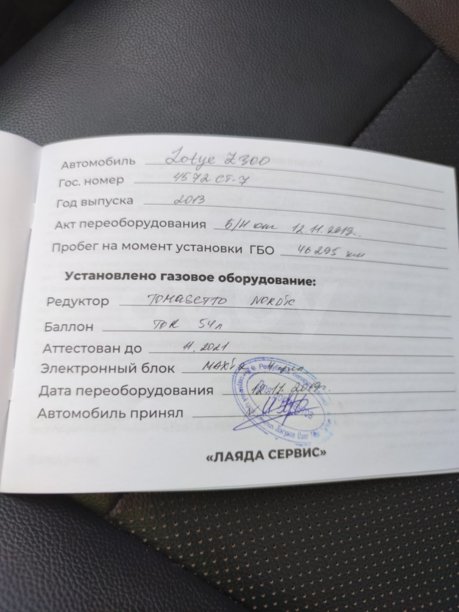 Автомобиль Zotye Z300
Гос. номер 4572 СТ-7
Год выпуска 2013
Акт переоборудования б/н от 12.11.2019г.
Пробег на момент установки ГБО 46 295 км
Установлено газовое оборудование:
Редуктор TOMASETTO NORDIC
Баллон TOR 54л
Аттестован до 11.2021
Электронный блок
Дата переоборудования 12.11.2019г.
Автомобиль принял
«ЛАЯДА СЕРВИС»